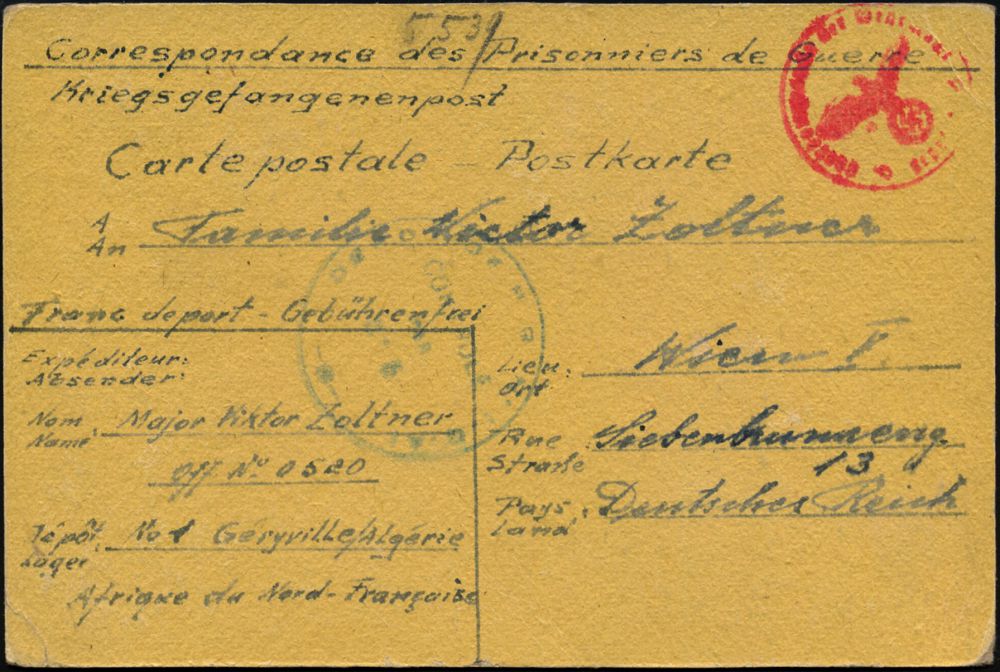 553
Correspondance des Prisonniers de Guerre
Kriegsgefangenenpost
Carte postale - Postkarte
A
An
Familie Victor Zoltner
Franc de port - Gebührenfrei
Expéditeur:
Absender:
Nom
Name: Major Viktor Zoltner
Off No 0520
Dépôt
Lager No 1 Géryville/Algérie
Afrique du Nord-Française
Lieu:
Ort Wien V.
Rue
Straße Siebenbrunneng.
13
Pays:
Land Deutsches Reich